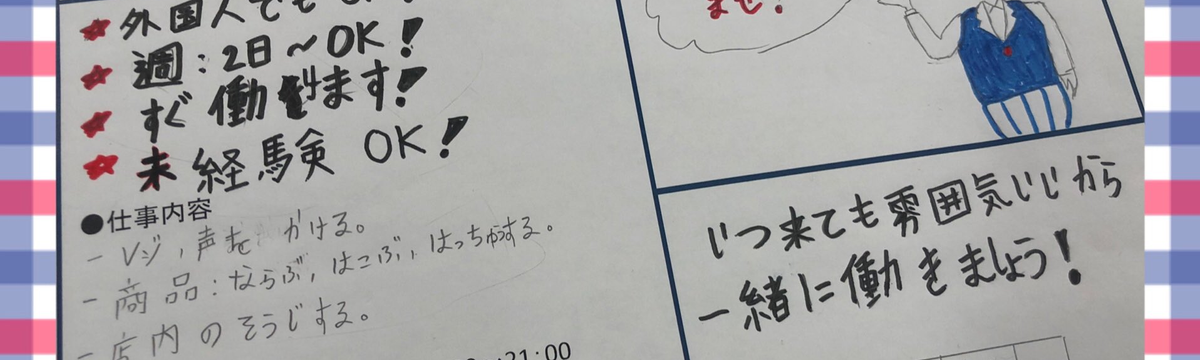 ★外国人でも
★週：2日～OK！
★すぐ働けます！
★未経験 OK！
●仕事内容
- レジ，声をかける。
- 商品：ならぶ，はこぶ，はっちゅうする。
- 店内のそうじする。
21:00
ませ！
いつ来ても雰囲気いいから
一緒に働きましょう！